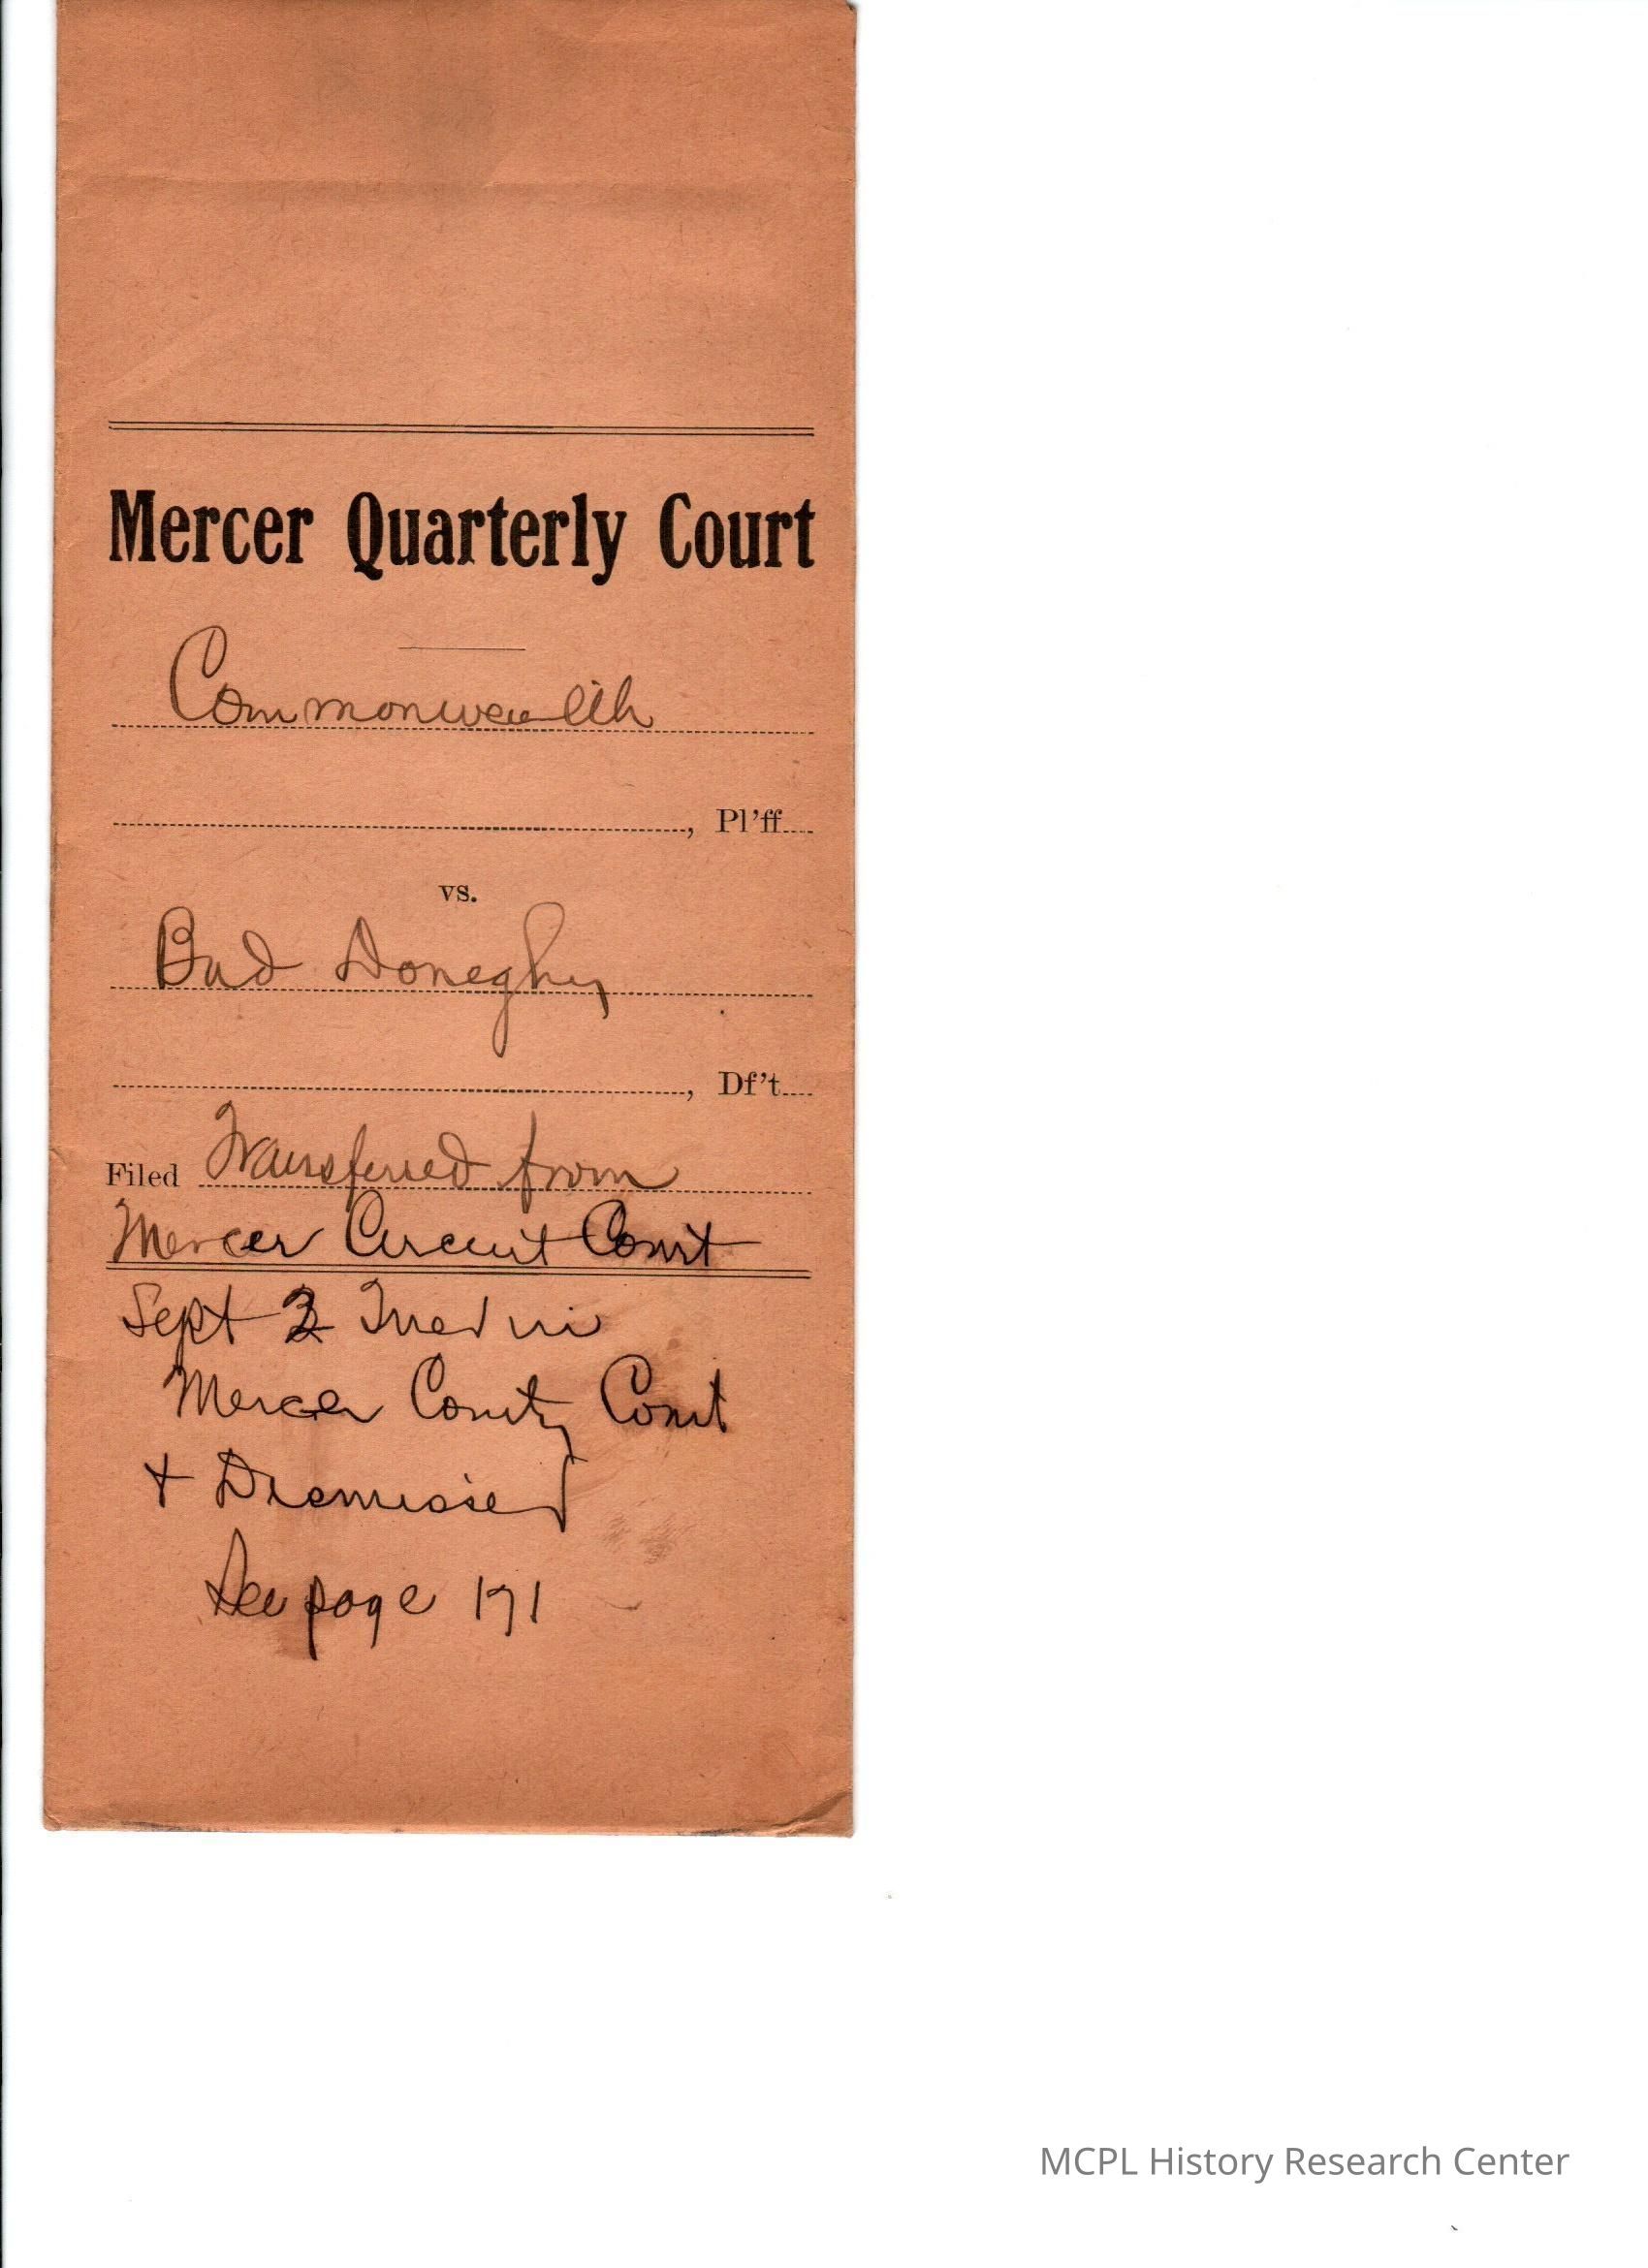 Mercer Quarterly Court
Commonwealth
, Pl'ff
vs.
Bud Doneghy
, Df't
Filed Transferred from
Mercer Circuit Court
Sept 2 Tried in
Mercer County Court
+ Dismissed
See page 171
MCPL History Research Center